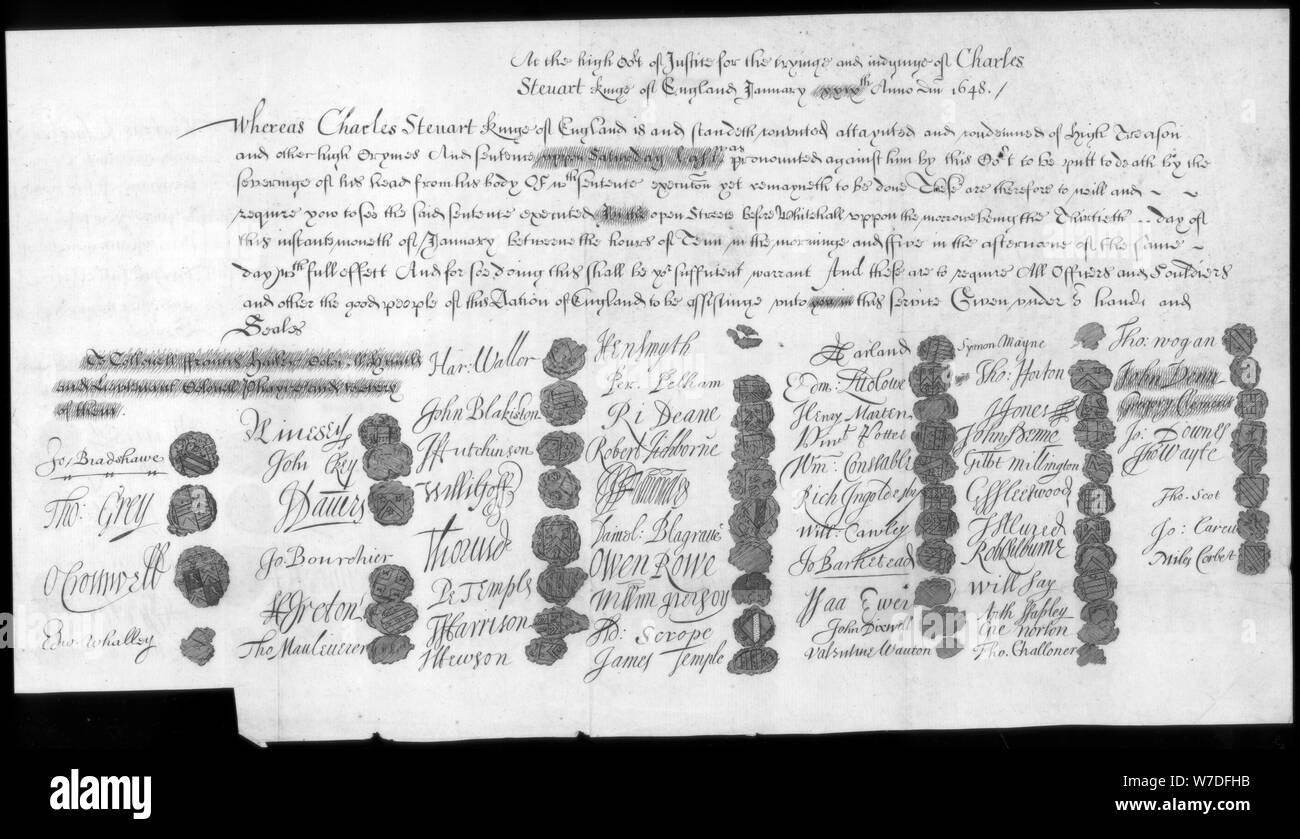 At the high Cort of Justice for the tryinge and iudginge of Charles
Steuart kinge of England January xxixth Anno Dni 1648./
Whereas Charles Steuart kinge of England is and standeth convicted attaynted and condemned of High Treason
and other high Crymes And sentence uppon Saturday last was pronounced against him by this Cort to be putt to death by the
severinge of his head from his body Of wch sentence execucon yet remayneth to be done These are therefore to will and
require you to see the said sentence executed In the open Streete before Whitehall uppon the morrowe being the Thirtieth day of
this instante moneth of January betweene the houres of Tenn in the morninge and five in the afternoone of the same
day wth full effect And for soe doing this shall be yor sufficient warrant And these are to require All Officers and Souldiers
and other the good people of this Nation of England to be assistinge unto you in this service Given under or hande and
Seales
To Collonell Francis Hacker Colonell Huncks
and Lieutenant Colonell Phayre and to every
of them.
Jo: Bradshawe
Tho: Grey
O Cromwell
Edw: Whalley
M Livesey
John Okey
J Davers
Jo Bourchier
H Ireton
Tho Mauleverer
Har: Waller
John Blakiston
J Hutchinson
Willi Goff
Tho Pride
Pe Temple
T Harrison
J Hewson
Hen Smyth
Per. Pelham
Ri Deane
Robert Tichborne
H Edwardes
Daniel Blagrave
Owen Rowe
William Purefoy
Ad: Scrope
James Temple
A Garland
Edm: Ludlowe
Henry Marten
Vinct Potter
Wm: Constable
Rich Ingoldesby
Will: Cawley
Jo Barkstead
Isaa Ewer
John Dixwell
Valentine Wauton
Symon Mayne
Tho: Horton
J Jones
John Penne
Gilbt Millington
G Fleetwood
J Alured
Rob Lilburne
Will Say
Anth Stapley
Gre Norton
Tho Challoner
Tho: Wogan
John Venn
Gregory Clement
Jo: Downes
Tho Wayte
Tho. Scot
Jo: Carew
Miles Corbet
alamy
W7DFHB
www.alamy.com